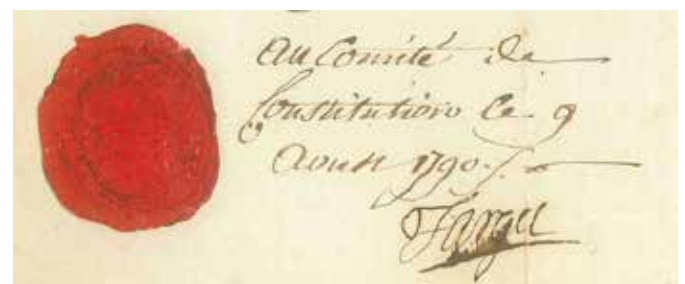 au Comité de
Constitution Ce 9
Aoust 1790.
Target